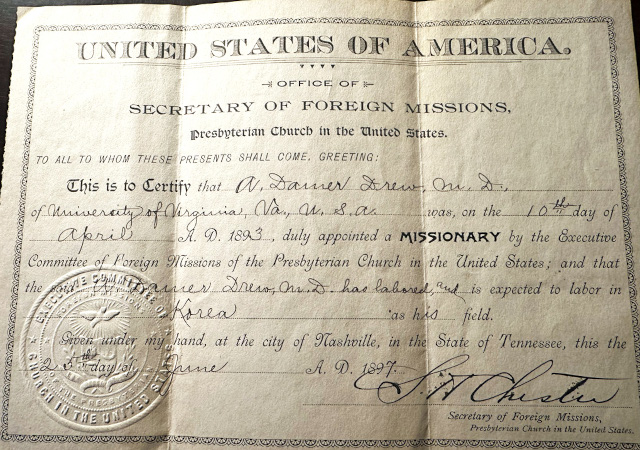 UNITED STATES OF AMERICA.
OFFICE OF
SECRETARY OF FOREIGN MISSIONS,
Presbyterian Church in the United States.
TO ALL TO WHOM THESE PRESENTS SHALL COME, GREETING:
This is to Certify that A. Damer Drew, M.D.,
of University of Virginia, Va., U.S.A. was, on the 10th day of
April A. D. 1893, duly appointed a MISSIONARY by the Executive
Committee of Foreign Missions of the Presbyterian Church in the United States; and that
the said A. Damer Drew, M.D. has labored, and is expected to labor in
Korea as his field.
Given under my hand, at the city of Nashville, in the State of Tennessee, this the
25th day of June A. D. 1897.
S. H. Chester
Secretary of Foreign Missions,
Presbyterian Church in the United States.
EXECUTIVE COMMITTEE OF
FOREIGN MISSIONS
OF THE PRESBYTERIAN
CHURCH IN THE UNITED STATES